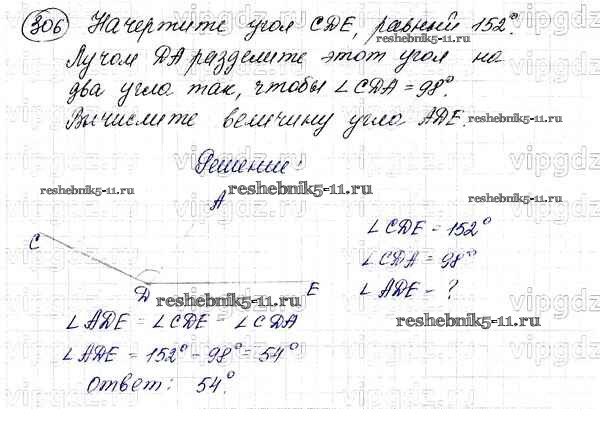 306 Начертите угол CDE, равный 152°.
Лучом DA разделите этот угол на
два угла так, чтобы ∠CDA = 98°.
Вычислите величину угла ADE.
reshebnik5-11.ru
Решение:
reshebnik5-11.ru
reshebnik5-11.ru
A
C
∠CDE = 152°
∠CDA = 98°
D
E
∠ADE - ?
reshebnik5-11.ru
reshebnik5-11.ru
∠ADE = ∠CDE - ∠CDA
∠ADE = 152° - 98° = 54°
Ответ: 54°.